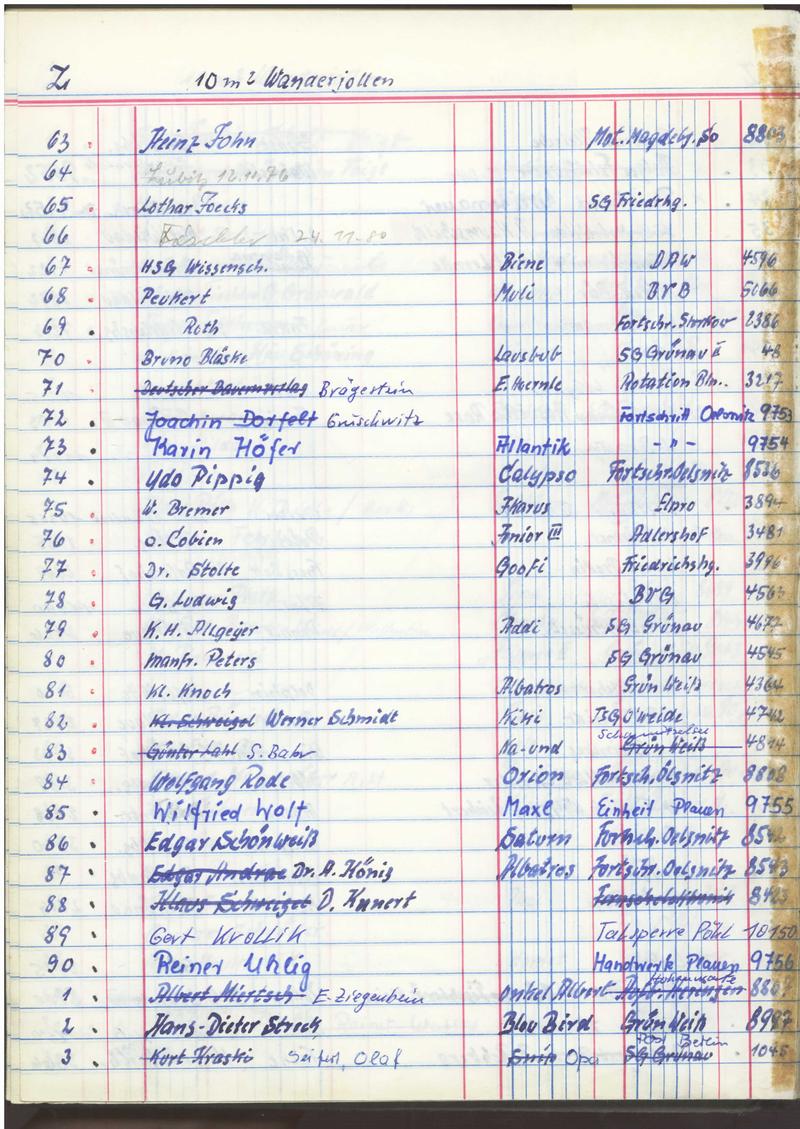 Z 10 m² Wanderjollen
63 Heinz Fohn Mot. Magdebg. So
64 12.11.76
65 Lothar Foecks SG Friedrhg.
66 24.11.80
67 HSG Wissensch. Biene DAW 4596
68 Peukert Muli BVB 5066
69 Roth Fortschr. 2386
70 Bruno Bläske Lausbub SG Grünau II 48
71 Deutscher Bauernverlag Brägertein E. Hoernle Rotation Bln. 3217
72 Joachim Dorfelt Gruschwitz Fortschritt 9753
73 Karin Höfer Atlantik - " - 9754
74 Udo Pippig Calypso Fortschr. Oelsnitz 8536
75 W. Bremer Ikarus Elpro 3894
76 O. Cobien Junior III Adlershof 3481
77 Dr. Stolte Goofi Friedrichshg. 3996
78 G. Ludwig BVG 4563
79 K. H. Allgeyer Addi SG Grünau 4677
80 Manfr. Peters SG Grünau 4545
81 Kl. Knoch Albatros Grün Weiß 4364
82 Kl. Schweigel Werner Schmidt Kiki TSG O'weide 4742
83 Günter Lahl S. Bahr Na-und Grün Weiß 4814
84 Wolfgang Rode Orion Fortsch. Ölsnitz 8808
85 Wilfried Wolf Maxe Einheit Plauen 9755
86 Edgar Schönweiß Saturn Fortsch. Oelsnitz
87 Edgar Andrae Dr. A. König Albatros Fortschr. Oelsnitz 8543
88 Klaus Schweigel D. Kunert
89 Gert Krollik Talsperre Pöhl 10150
90 Reiner Uhlig Handwerk Plauen 9756
1 Albert Miertsch E. Ziegenbein Onkel Albert Hohenwarte
2 Hans-Dieter Streck Blou Bird Grün Weiß 8997
3 Kurt Kraski Seifert, Olaf Opa SG Grünau Post Berlin 1045